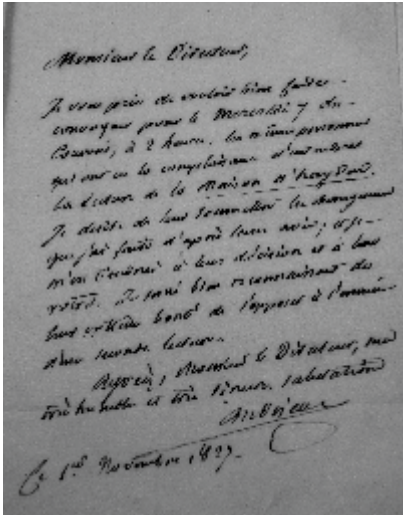 Monsieur le Directeur,
Je vous prie de vouloir bien faire
convoquer pour le Mercredi 7 du
Courant, à 2 heures, les mêmes personnes
qui ont eu la complaisance d'entendre
la lecture de la Maison
Je désire de leur soumettre les changements
que j'ai faits d'après leur avis; et je
m'en à leur décision et à leur
Je serai bien reconnaissant de
leur bonté de s'exposer à l'ennui
d'une seconde lecture.
Agréez, Monsieur le Directeur, mes
très humbles et très sincères salutations
Andrieux
Ce 1er Novembre 1827.